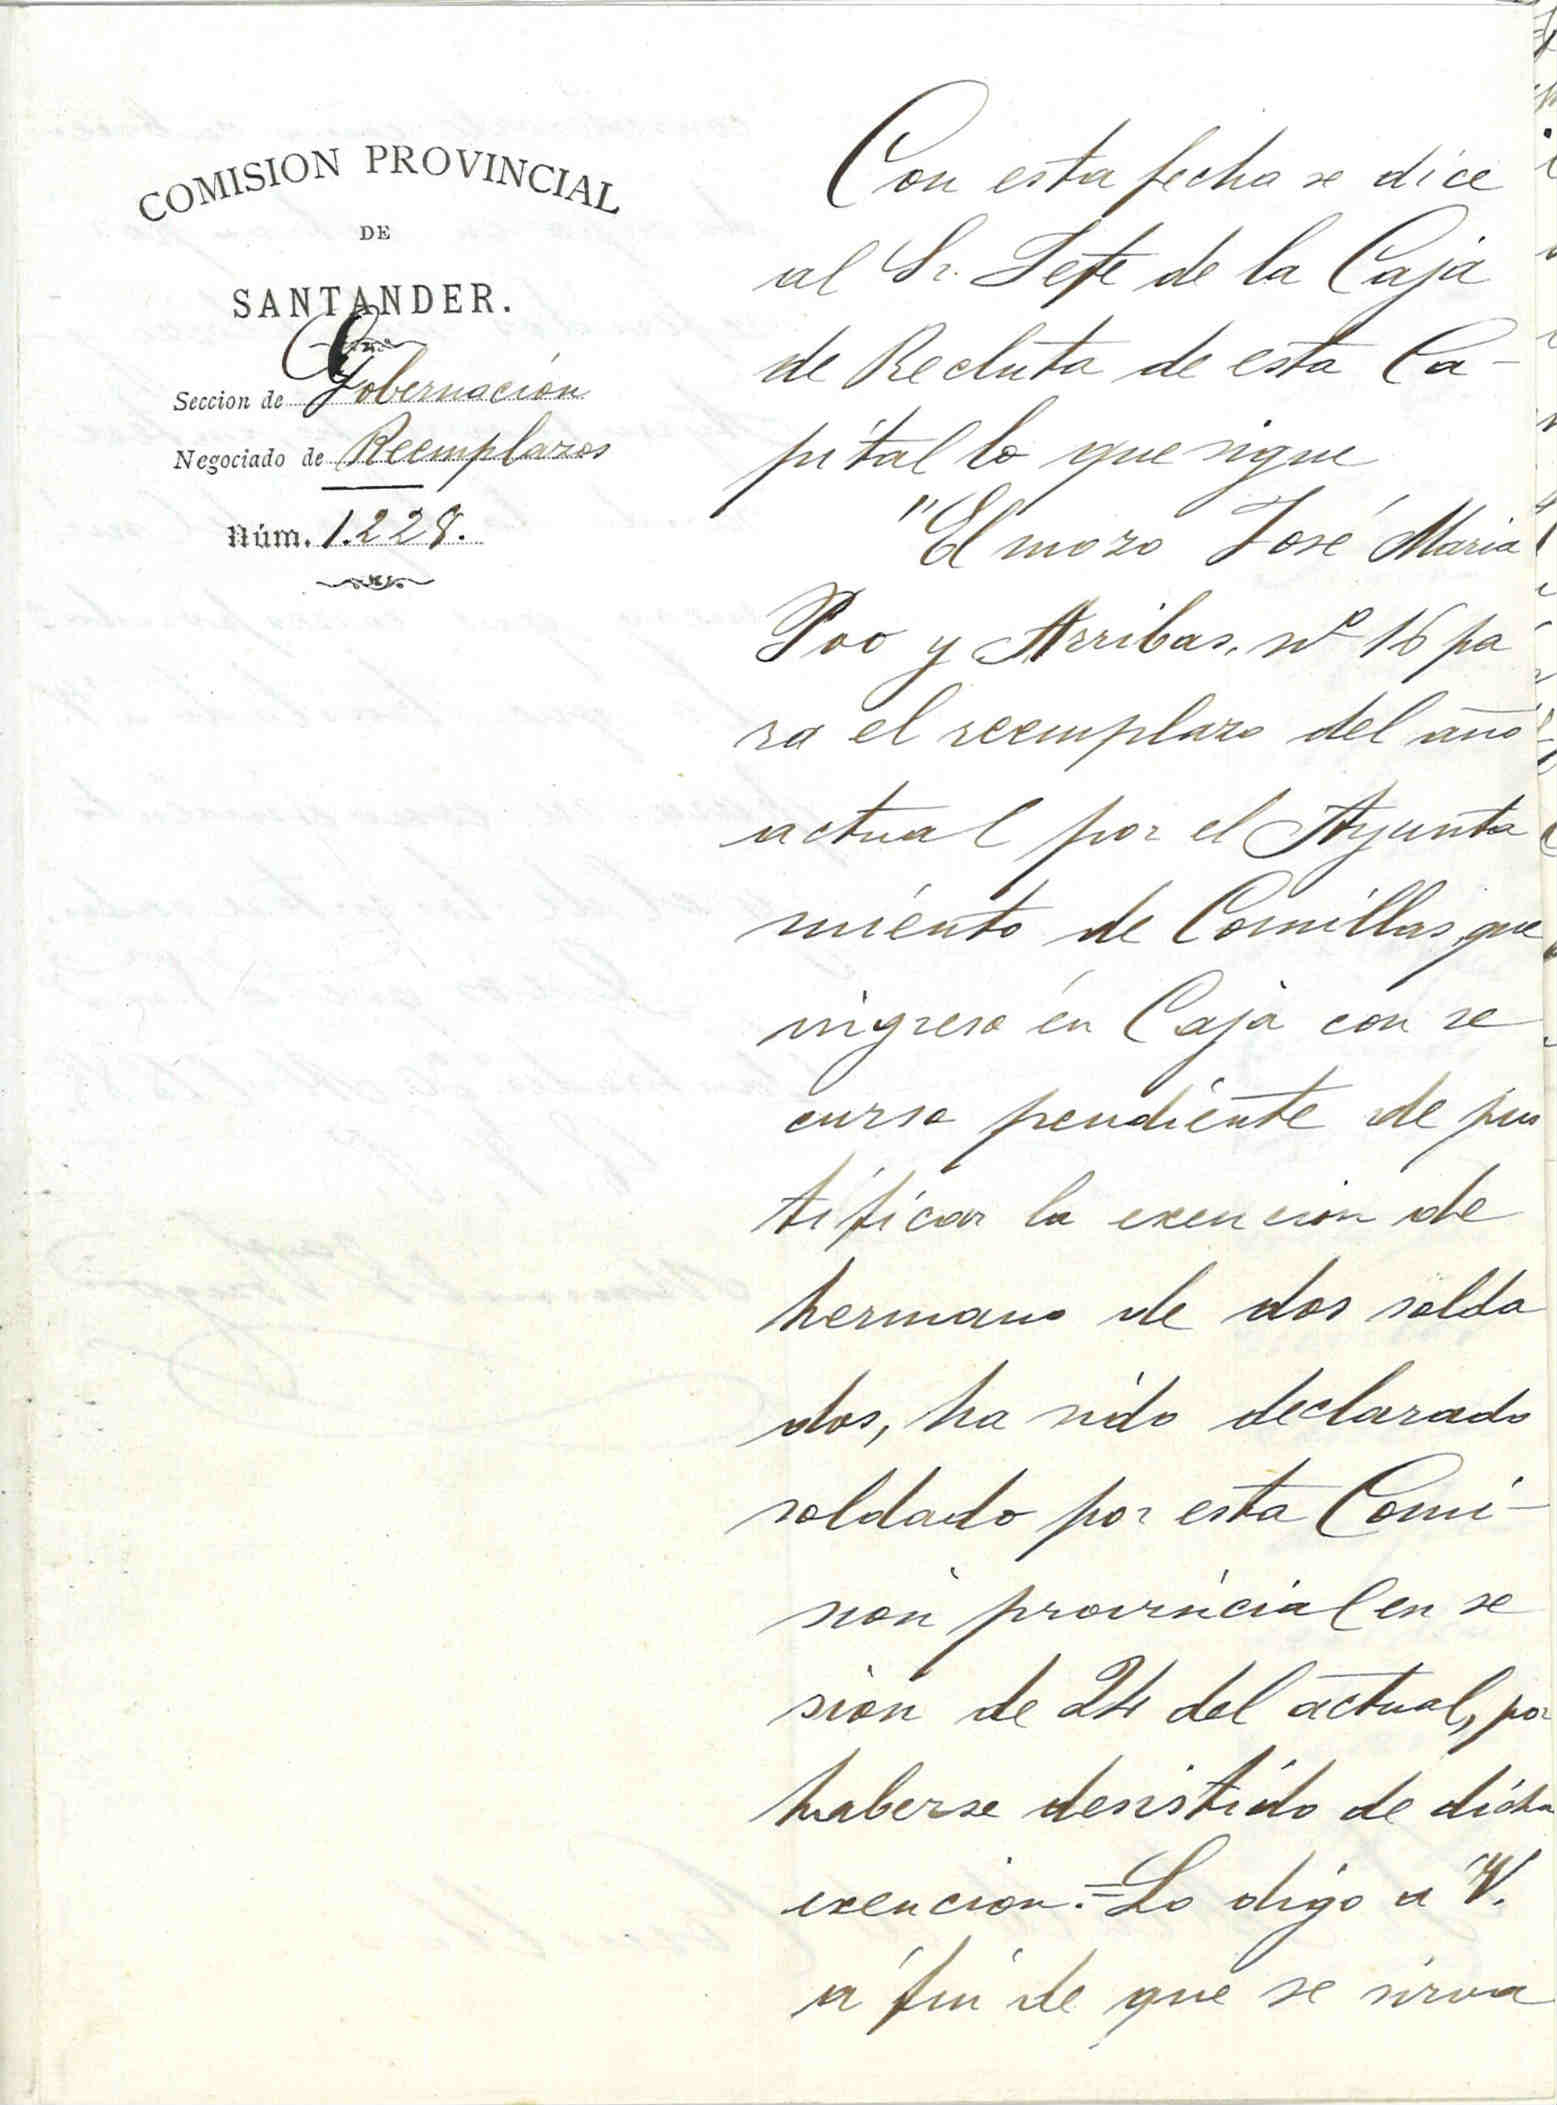 COMISION PROVINCIAL
DE
SANTANDER.
Seccion de Gobernación
Negociado de Reemplazos
Núm. 1.228.
Con esta fecha se dice
al Sr. Jefe de la Caja
de Recluta de esta Ca-
pital lo que sigue
"El mozo José Maria
Poo y Arribas, nº 16 pa
ra el reemplazo del año
actual por el Ayunta
miento de Comillas, que
ingreso en Caja con re
curso pendiente de jus
tificar la exencion de
hermano de dos solda
dos, ha sido declarado
soldado por esta Comi-
sion provincial en se
sion de 24 del actual, por
haberse desistido de dicha
exencion.=Lo digo a V.
a fin de que se sirva